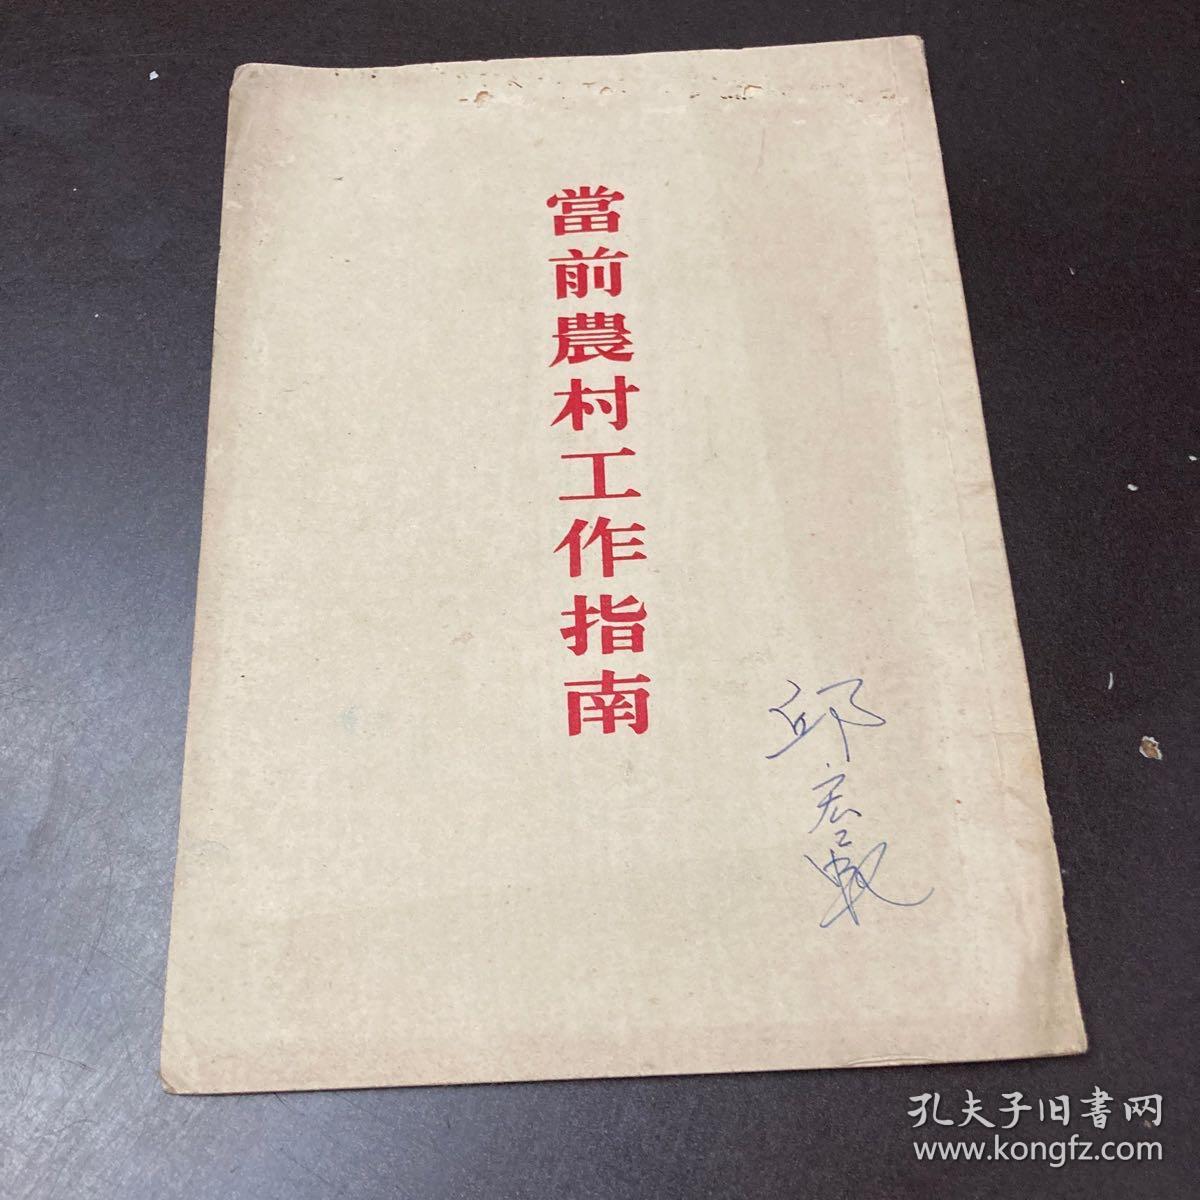 當前農村工作指南
邱宏
孔夫子旧書网
www.kongfz.com